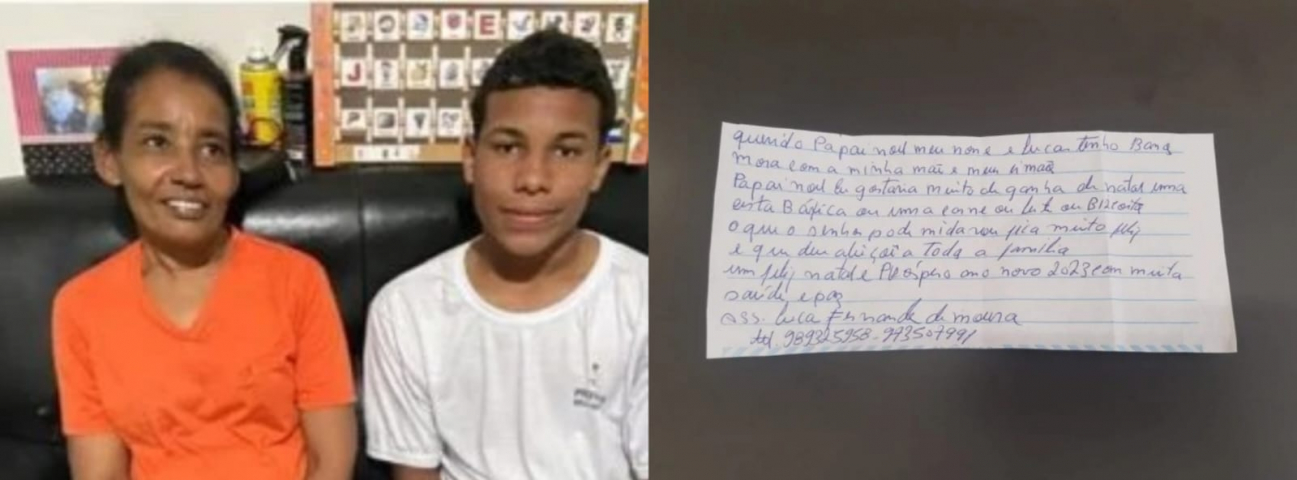 E
J
querido Papai noel meu nome e lucas tenho
mora com a minha mãe e meu irmão
Papai noel Eu gostaria muito de ganha de natal uma
cesta Báxica ou uma carne ou leite ou Biscoito
o que o senho pode mida vou fica muito feliz
e que deu abiçoi a Toda a familha
um feliz natal e Próspero ano novo 2023 com muita
saúde e paz
ass. luca Fernande de moura
tel. 989325958-993507991